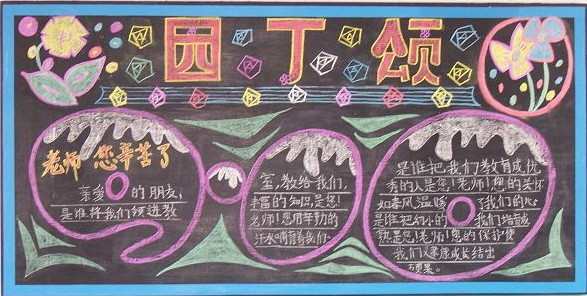 园丁颂
老师 您辛苦了
亲爱的朋友,
是谁将我们领进教
室,教给我们,
丰富的知识,是您!
老师!您用辛勤的
汗水哺育着我们。
是谁把我们教育成优
秀的人是您!老师!您的关怀
如春风,温暖了我们的心
是谁把幼小的我们培育成
是您!老师!您的保护使
我们健康成长结出
硕果。